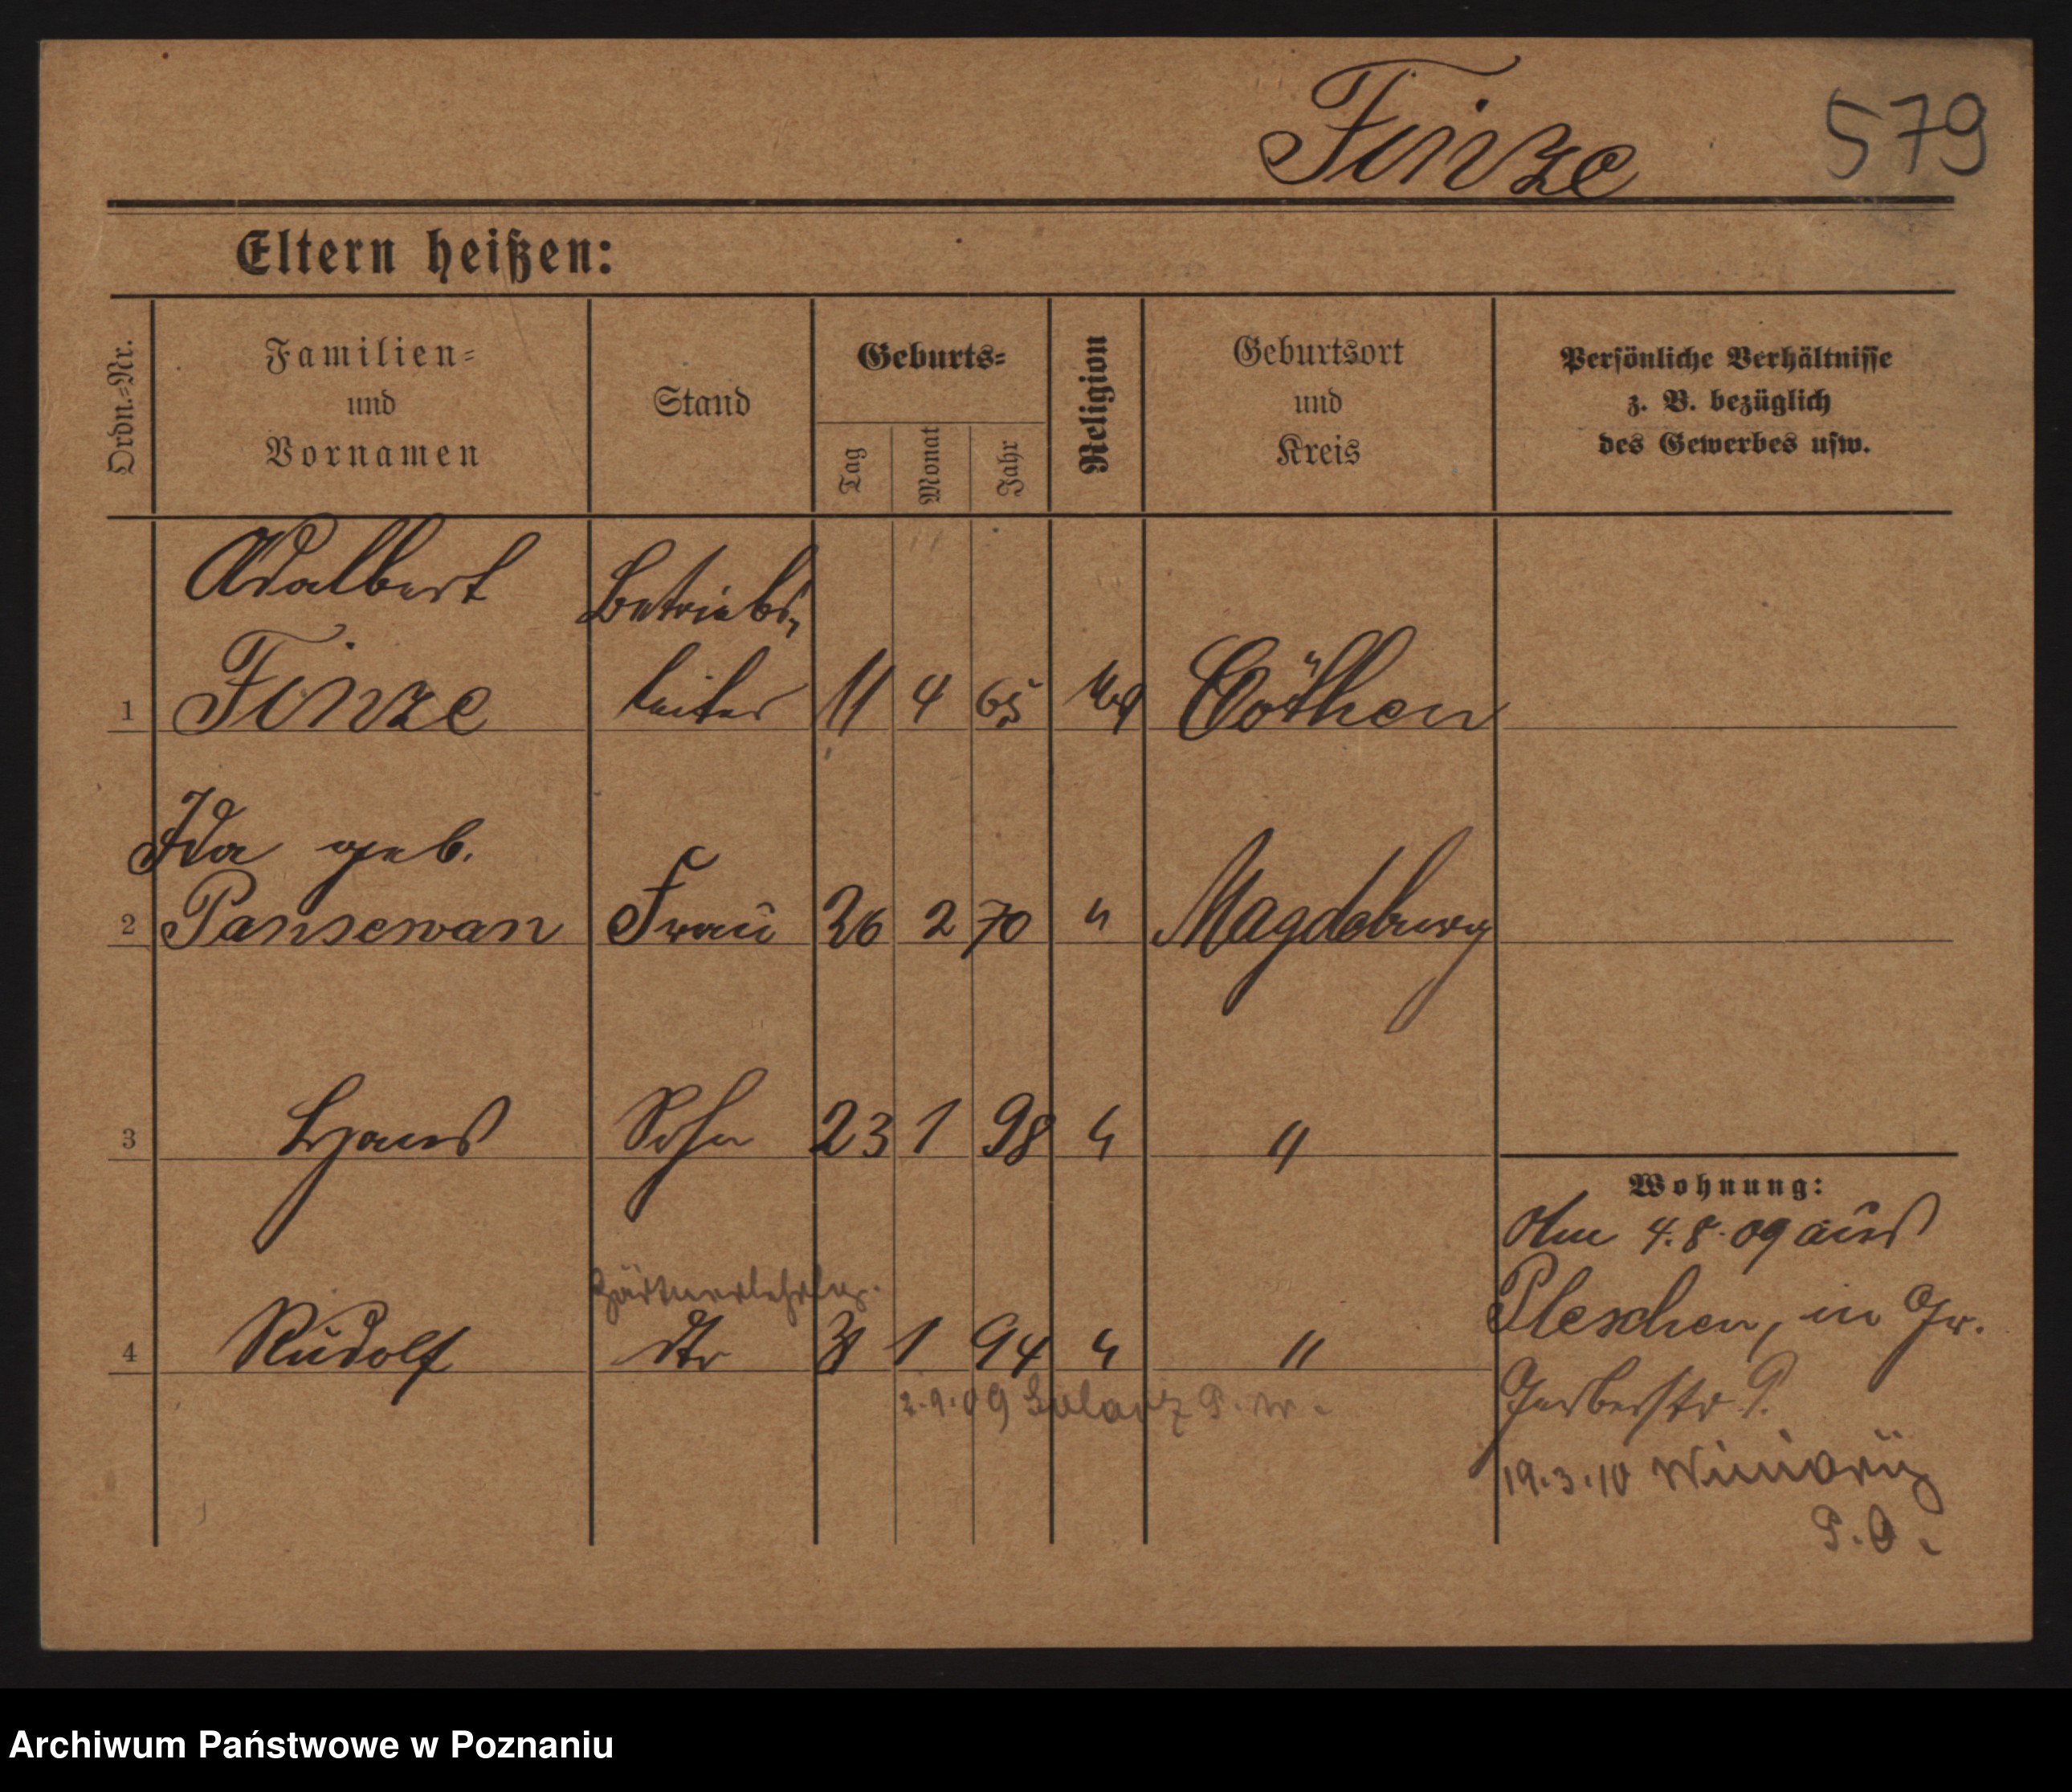 Finze 579
Eltern heißen:
Ordn.=Nr.
Familien=
und
Vornamen
Stand
Geburts=
Tag
Monat
Jahr
Religion
Geburtsort
und
Kreis
Persönliche Verhältnisse
z. B. bezüglich
des Gewerbes usw.
Adalbert Betriebs-
1 Finze leiter 11 4 65 Cöthen
Ida geb.
2 Pansewan Frau 26 2 70 " Magdeburg
3 Hans Sohn 23 1 98 " "
Wohnung:
Am 4.8.09 aus
Gärtnerlehrlng.
Pleschen, in Gr.
4 Rudolf dto 1 94 " "
Gerberstr 9.
2.9.09 P. W.
19.3.10 Winiary
P. O.
Archiwum Państwowe w Poznaniu